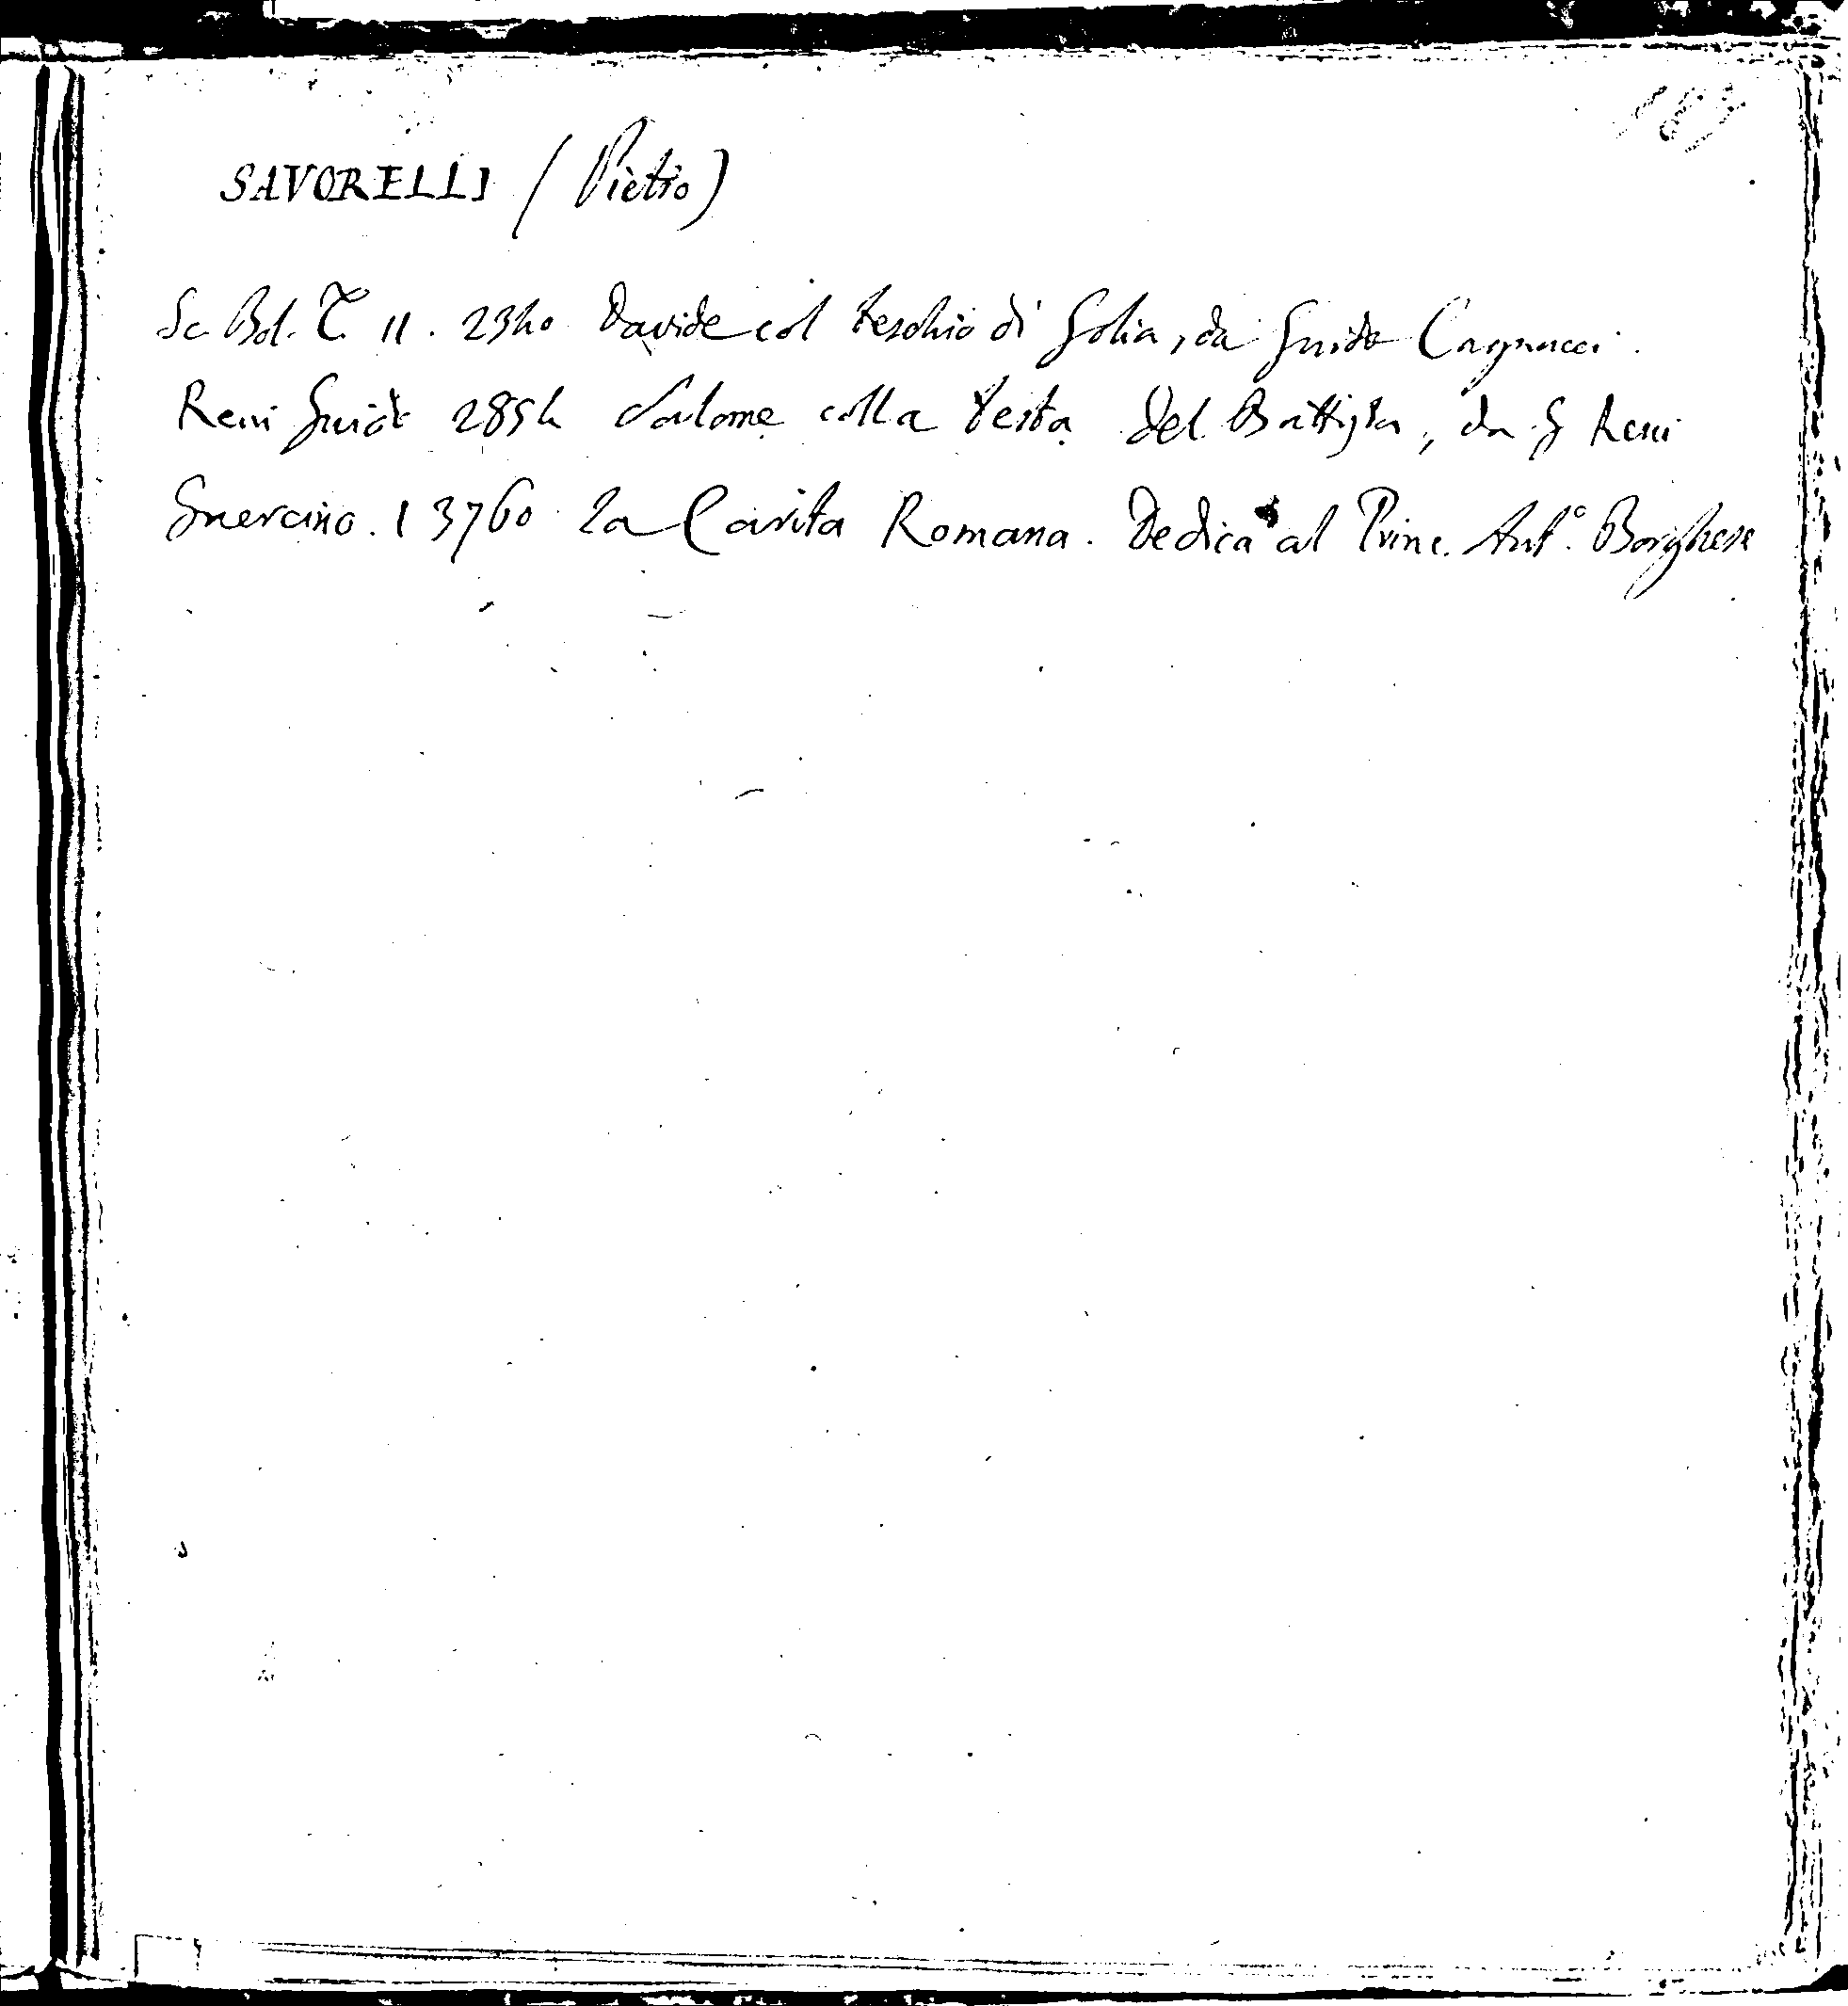 187
SAVORELLI (Pietro)
Sc. Bol. T. 11. 2340 Davide col teschio di Golia, da Guido Cagnacci.
Reni Guido 2854 Salome colla testa del Battista, da G Reni
Guercino. 13760 La Carita Romana. Dedica al Princ. Ant.º Borghese